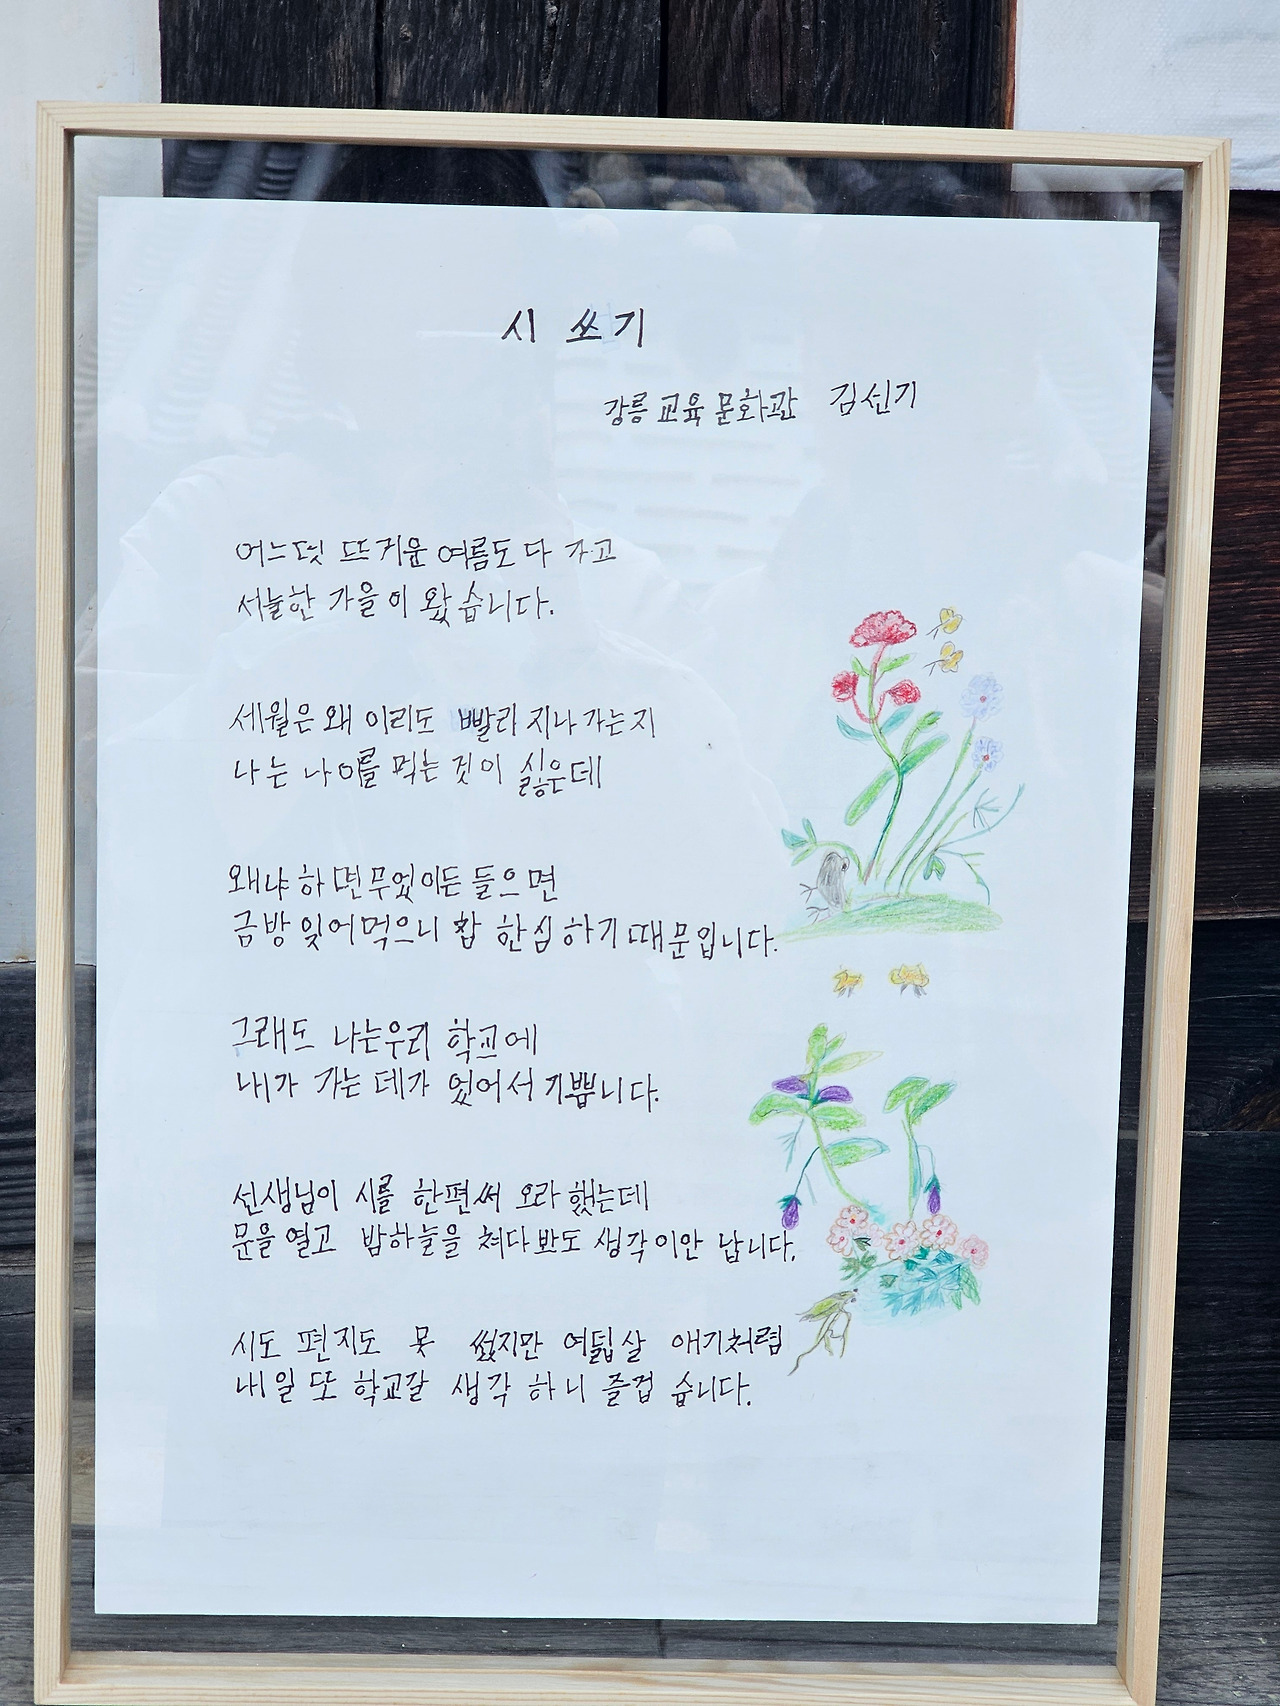 시 쓰기
강릉교육문화관 김선기
어느덧 뜨거운 여름도 다 가고
서늘한 가을이 왔습니다.
세월은 왜 이리도 빨리 지나가는지
나는 나이를 먹는 것이 싫은데
왜냐하면 무엇이든 들으면
금방 잊어먹으니 참 한심하기 때문입니다.
그래도 나는 우리 학교에
내가 가는 데가 있어서 기쁩니다.
선생님이 시를 한편 써 오라 했는데
문을 열고 밤하늘을 쳐다봐도 생각이 안 납니다.
시도 편지도 못 썼지만 여덟살 애기처럼
내일 또 학교갈 생각 하니 즐겁습니다.